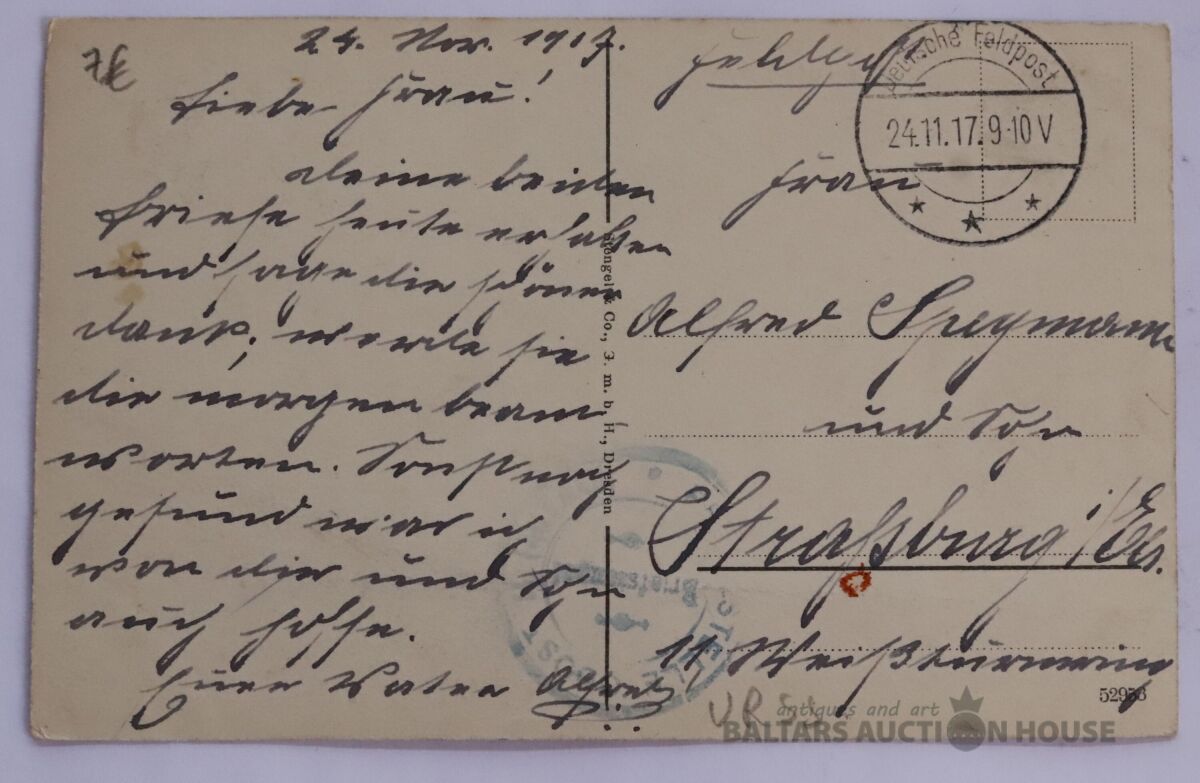 7€
24. Nov. 1917.
Liebe Frau!
Deine beiden
Briefe heute erhalten
und sage dir schönen
dank, werde sie
dir morgen beant
worten. Sonst noch
gesund was ich
von dir und Sohn
auch hoffe.
Euer Vater Alfred
& Co., G. m. b. H., Dresden
Feldpost
Deutsche Feldpost
24.11.17. 9-10 V
Frau
Alfred
und Sohn
Straßburg i/Els.
11 Weißturmring
52953
antiques and art
BALTARS AUCTION HOUSE